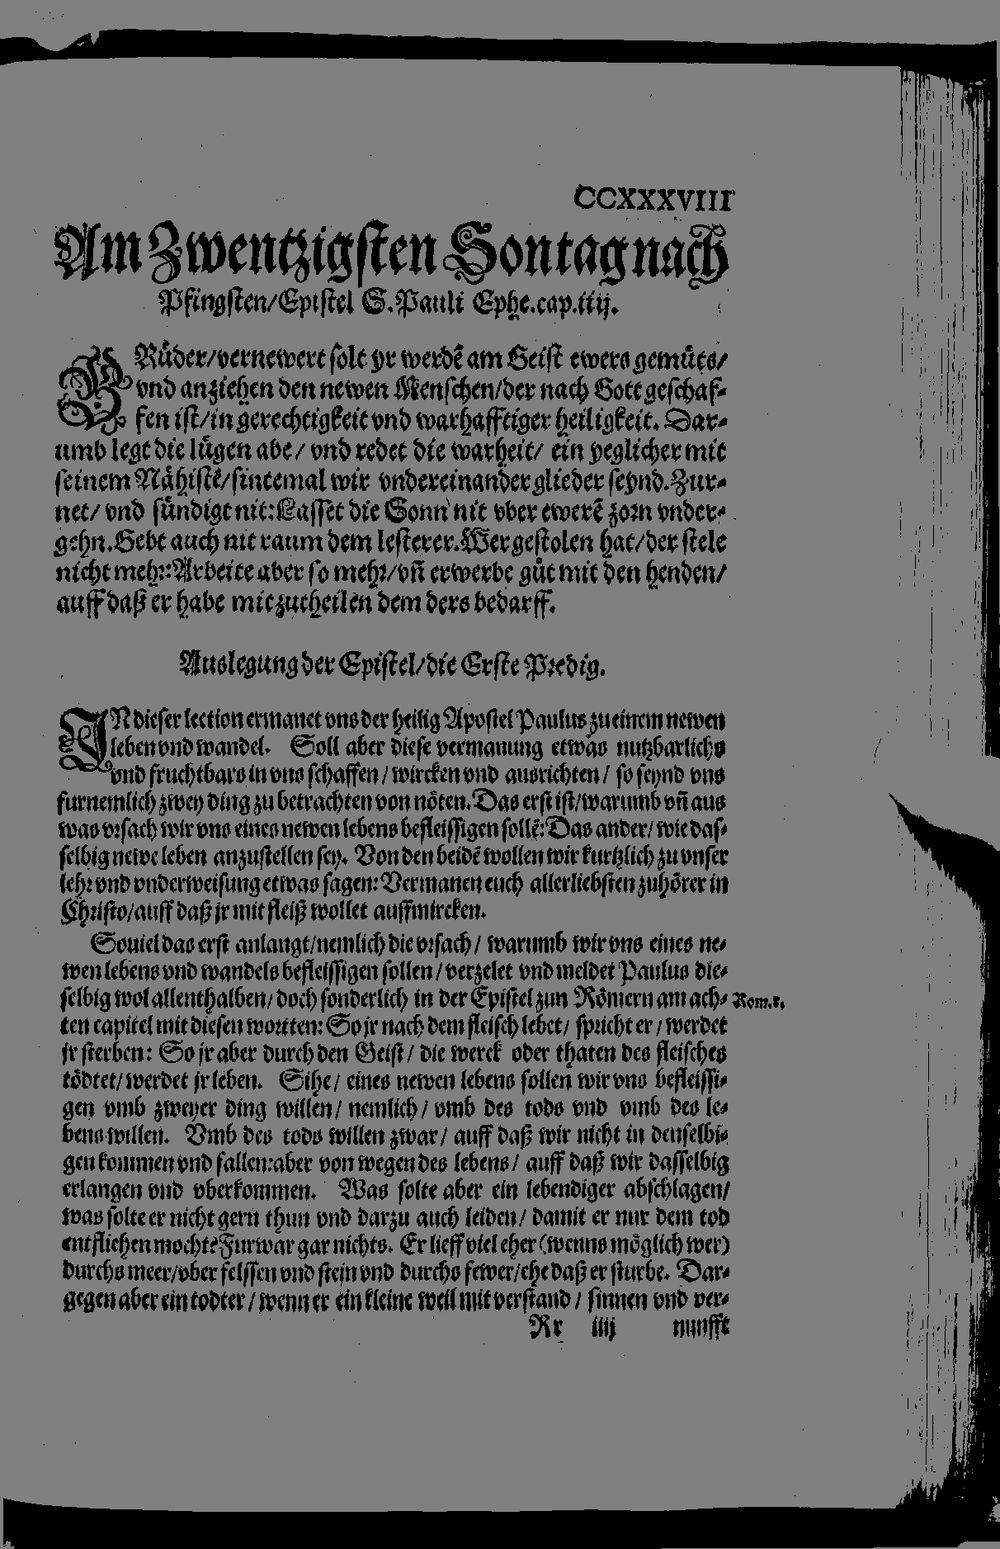 CCXXXVIII
Am Zwentzigsten Sontag nach
Pfingsten/Epistel S. Pauli Ephe. cap. iiij.
BRüder/vernewert solt yr werdē am Geist ewers gemüts/
vnd anziehen den newen Menschen/der nach Gott geschaf-
fen ist/in gerechtigkeit vnd warhafftiger heiligkeit. Dar-
umb legt die lügen abe/ vnd redet die warheit/ ein yeglicher mit
seinem Nähistē/sintemal wir vndereinander glieder seynd. Zur-
net/ vnd sündigt nit: Lasset die Sonn nit vber ewerē zorn vnder-
gehn. Gebt auch nit raum dem lesterer. Wer gestolen hat/der stele
nicht mehr: Arbeite aber so mehr/vñ erwerbe güt mit den henden/
auff daß er habe mitzutheilen dem ders bedarff.
Auslegung der Epistel/die Erste Predig.
IN dieser lection ermanet vns der heilig Apostel Paulus zu einem newen
leben vnd wandel. Soll aber diese vermanung etwas nutzbarlichs
vnd fruchtbars in vns schaffen/wircken vnd ausrichten/ so seynd vns
furnemlich zwey ding zu betrachten von nöten. Das erst ist/warumb vñ aus
was vrsach wir vns eines newen lebens befleissigen sollē: Das ander/ wie das-
selbig newe leben anzustellen sey. Von den beidē wollen wir kurtzlich zu vnser
lehr vnd vnderweisung etwas sagen: Vermanen euch allerliebsten zuhörer in
Christo/auff daß jr mit fleiß wollet auffmircken.
Souiel das erst anlangt/nemlich die vrsach/ warumb wir vns eines ne-
wen lebens vnd wandels befleissigen sollen/verzelet vnd meldet Paulus die-
selbig wol allenthalben/doch sonderlich in der Epistel zun Römern am ach- Rom. 8.
ten capitel mit diesen wortten: So jr nach dem fleisch lebet/ spricht er/werdet
jr sterben: So jr aber durch den Geist/ die werck oder thaten des fleisches
tödtet/werdet jr leben. Sihe/ eines newen lebens sollen wir vns befleissi-
gen vmb zweyer ding willen/ nemlich/ vmb des tods vnd vmb des le-
bens willen. Vmb des tods willen zwar/ auff daß wir nicht in denselbi-
gen kommen vnd fallen: aber von wegen des lebens/ auff daß wir dasselbig
erlangen vnd vberkommen. Was solte aber ein lebendiger abschlagen/
was solte er nicht gern thun vnd darzu auch leiden/ damit er nur dem tod
entfliehen mocht? Furwar gar nichts. Er lieff viel eher (wenns möglich wer)
durchs meer/vber felssen vnd stein vnd durchs fewer/ehe daß er sturbe. Dar-
gegen aber ein todter/wenn er ein kleine weil mit verstand/ sinnen vnd ver-
Rr iiij nunfft